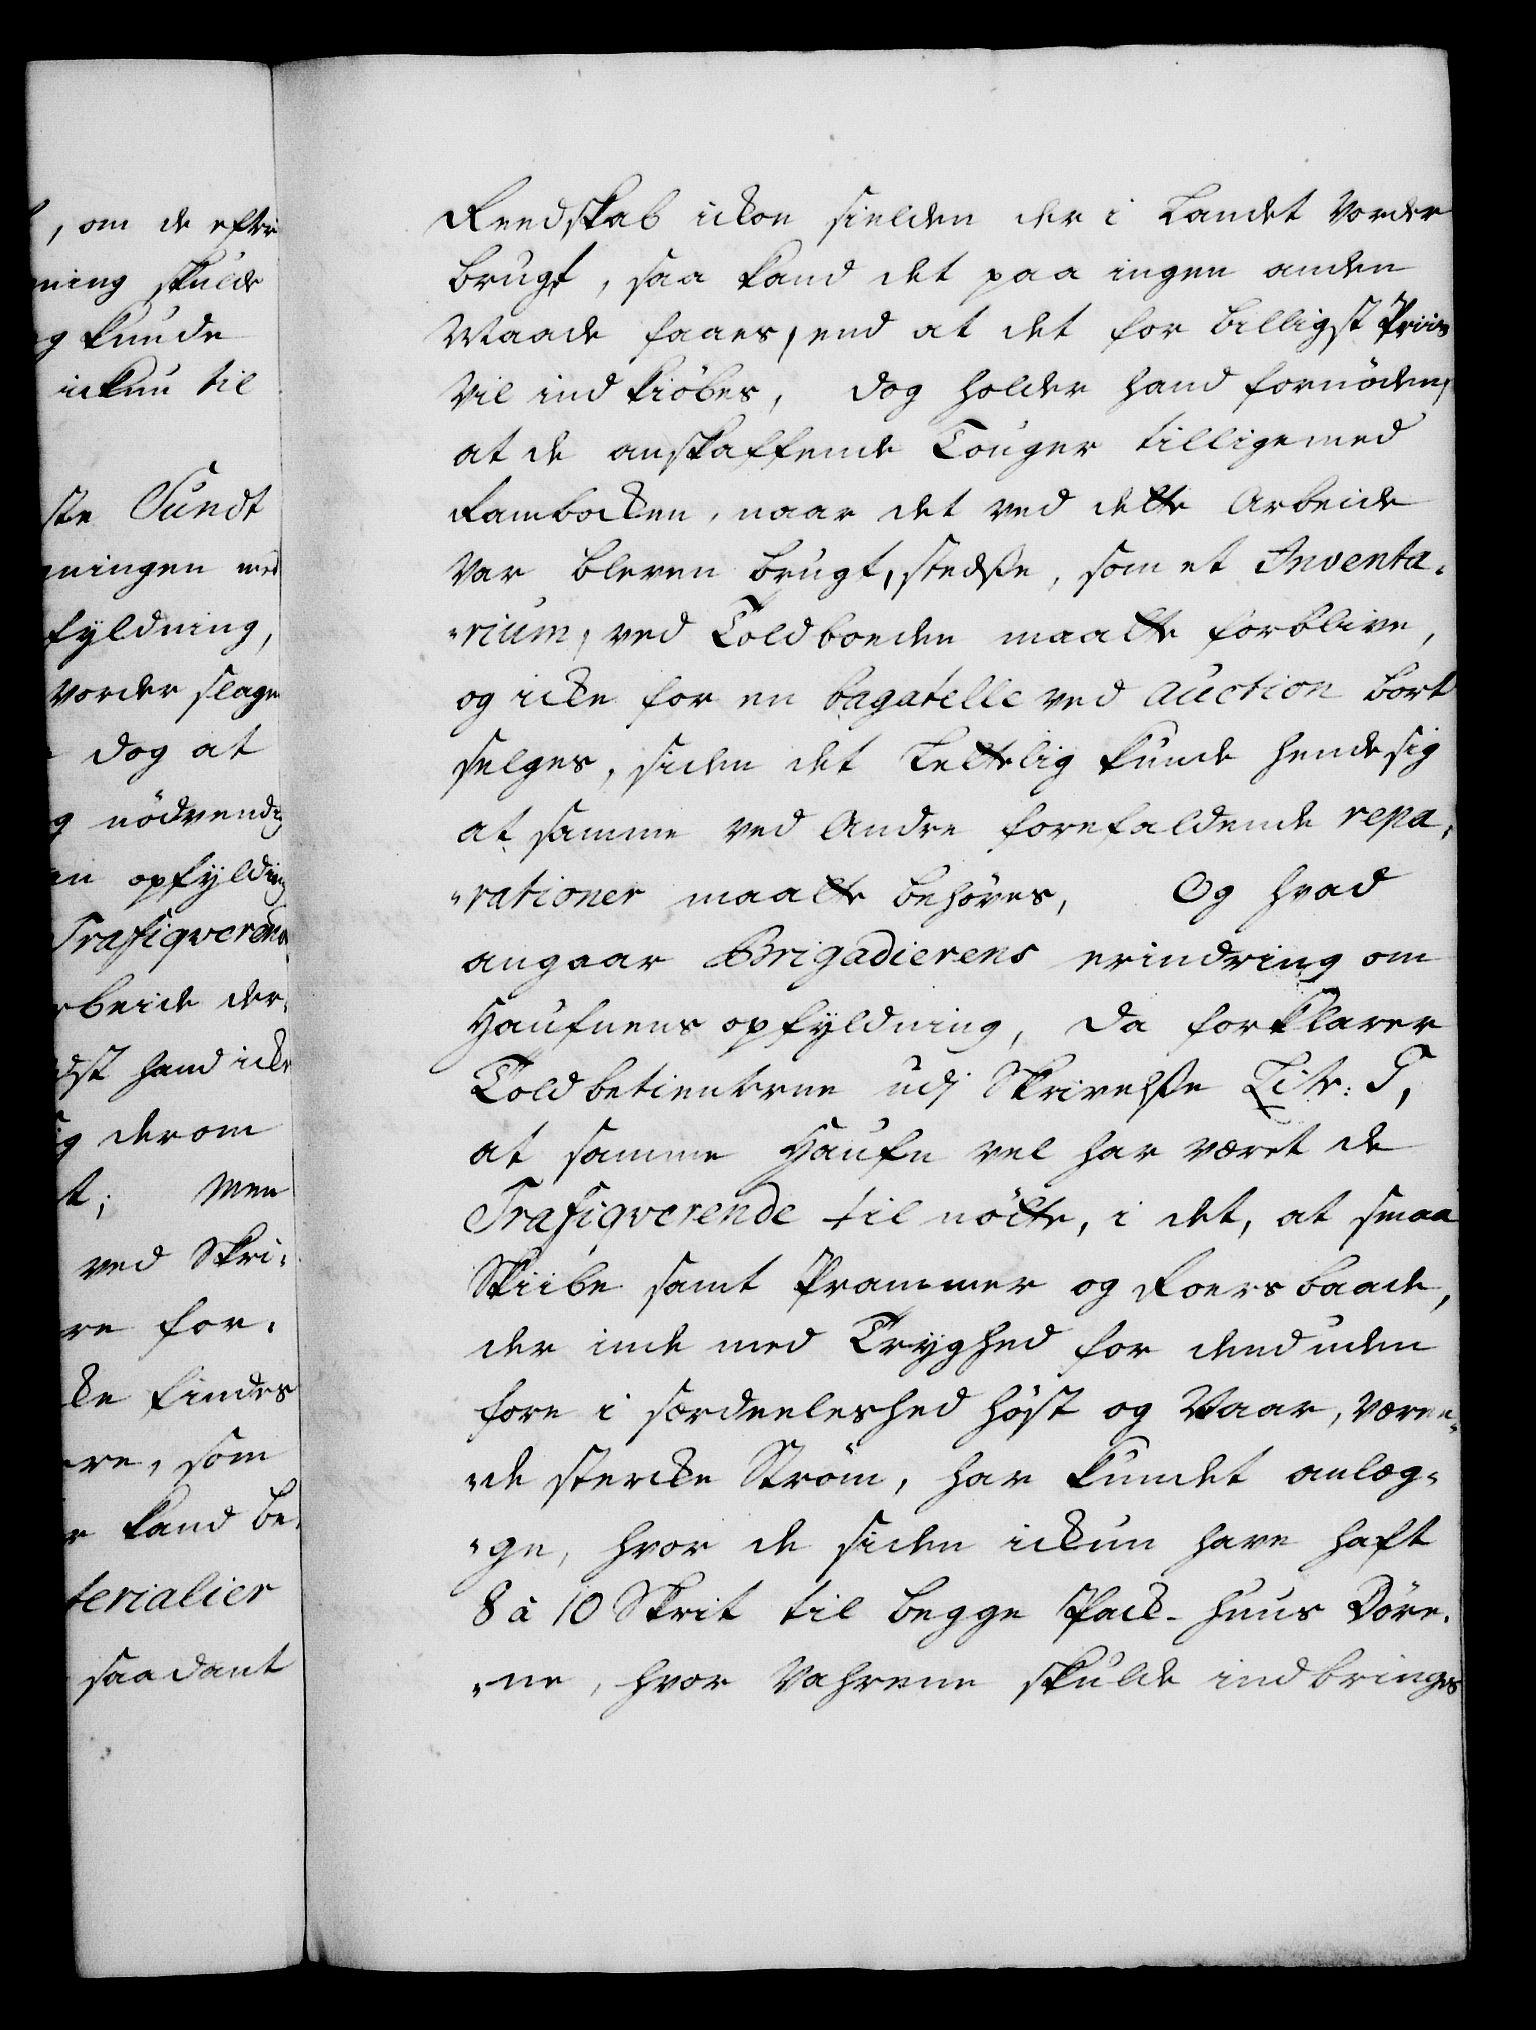 , om de efter
ning skulde
g kunde
ickun til
ste Sundt
ningen med
fyldning,
vorder slagen
dog at
g nödvendig
en opfylding
Trafiqverende
rbeide der
dst hand icke
g derom
t; Men
ved Skri-
re for-
cke findes
re, som
r kand be-
terialier
saadant
Reedskab ickon sielden der i Landet vorder
brugt, saa kand det paa ingen anden
Maade faaes, end at det for billigst Priis
vil ind kiöbes, dog holder hand fornöden,
at de anskaffende Touger tilligemed
Rambocken, naar det ved dette Arbeide
var bleven brugt, stedsse, som et Inventa-
-rium, ved Toldboeden maatte forblive,
og icke for en bagatelle ved Auction bort
selges, siden det Lettelig kunde hende sig
at samme ved Andre forefaldende repa-
-rationer maatte behöves, Og hvad
angaar Brigadierens erindring om
Haufnens opfyldning, da forklarer
Toldbetienterne udj Skrivelsse Litr: T,
at samme Haufn vel har været de
Trafiqverende til nötte, i det, at smaa
Skiibe samt Prammer og Roers baade,
der inde med Tryghed for dend uden
fore i særdeeleshed höst og Vaar, væren-
-de stercke Ström, har kundet anlæg-
-ge, hvor de siden ickun have haft
8 à 10 Skrit til begge Pack-huus Döre-
-ne, hvor Vahrene skulde indbringes